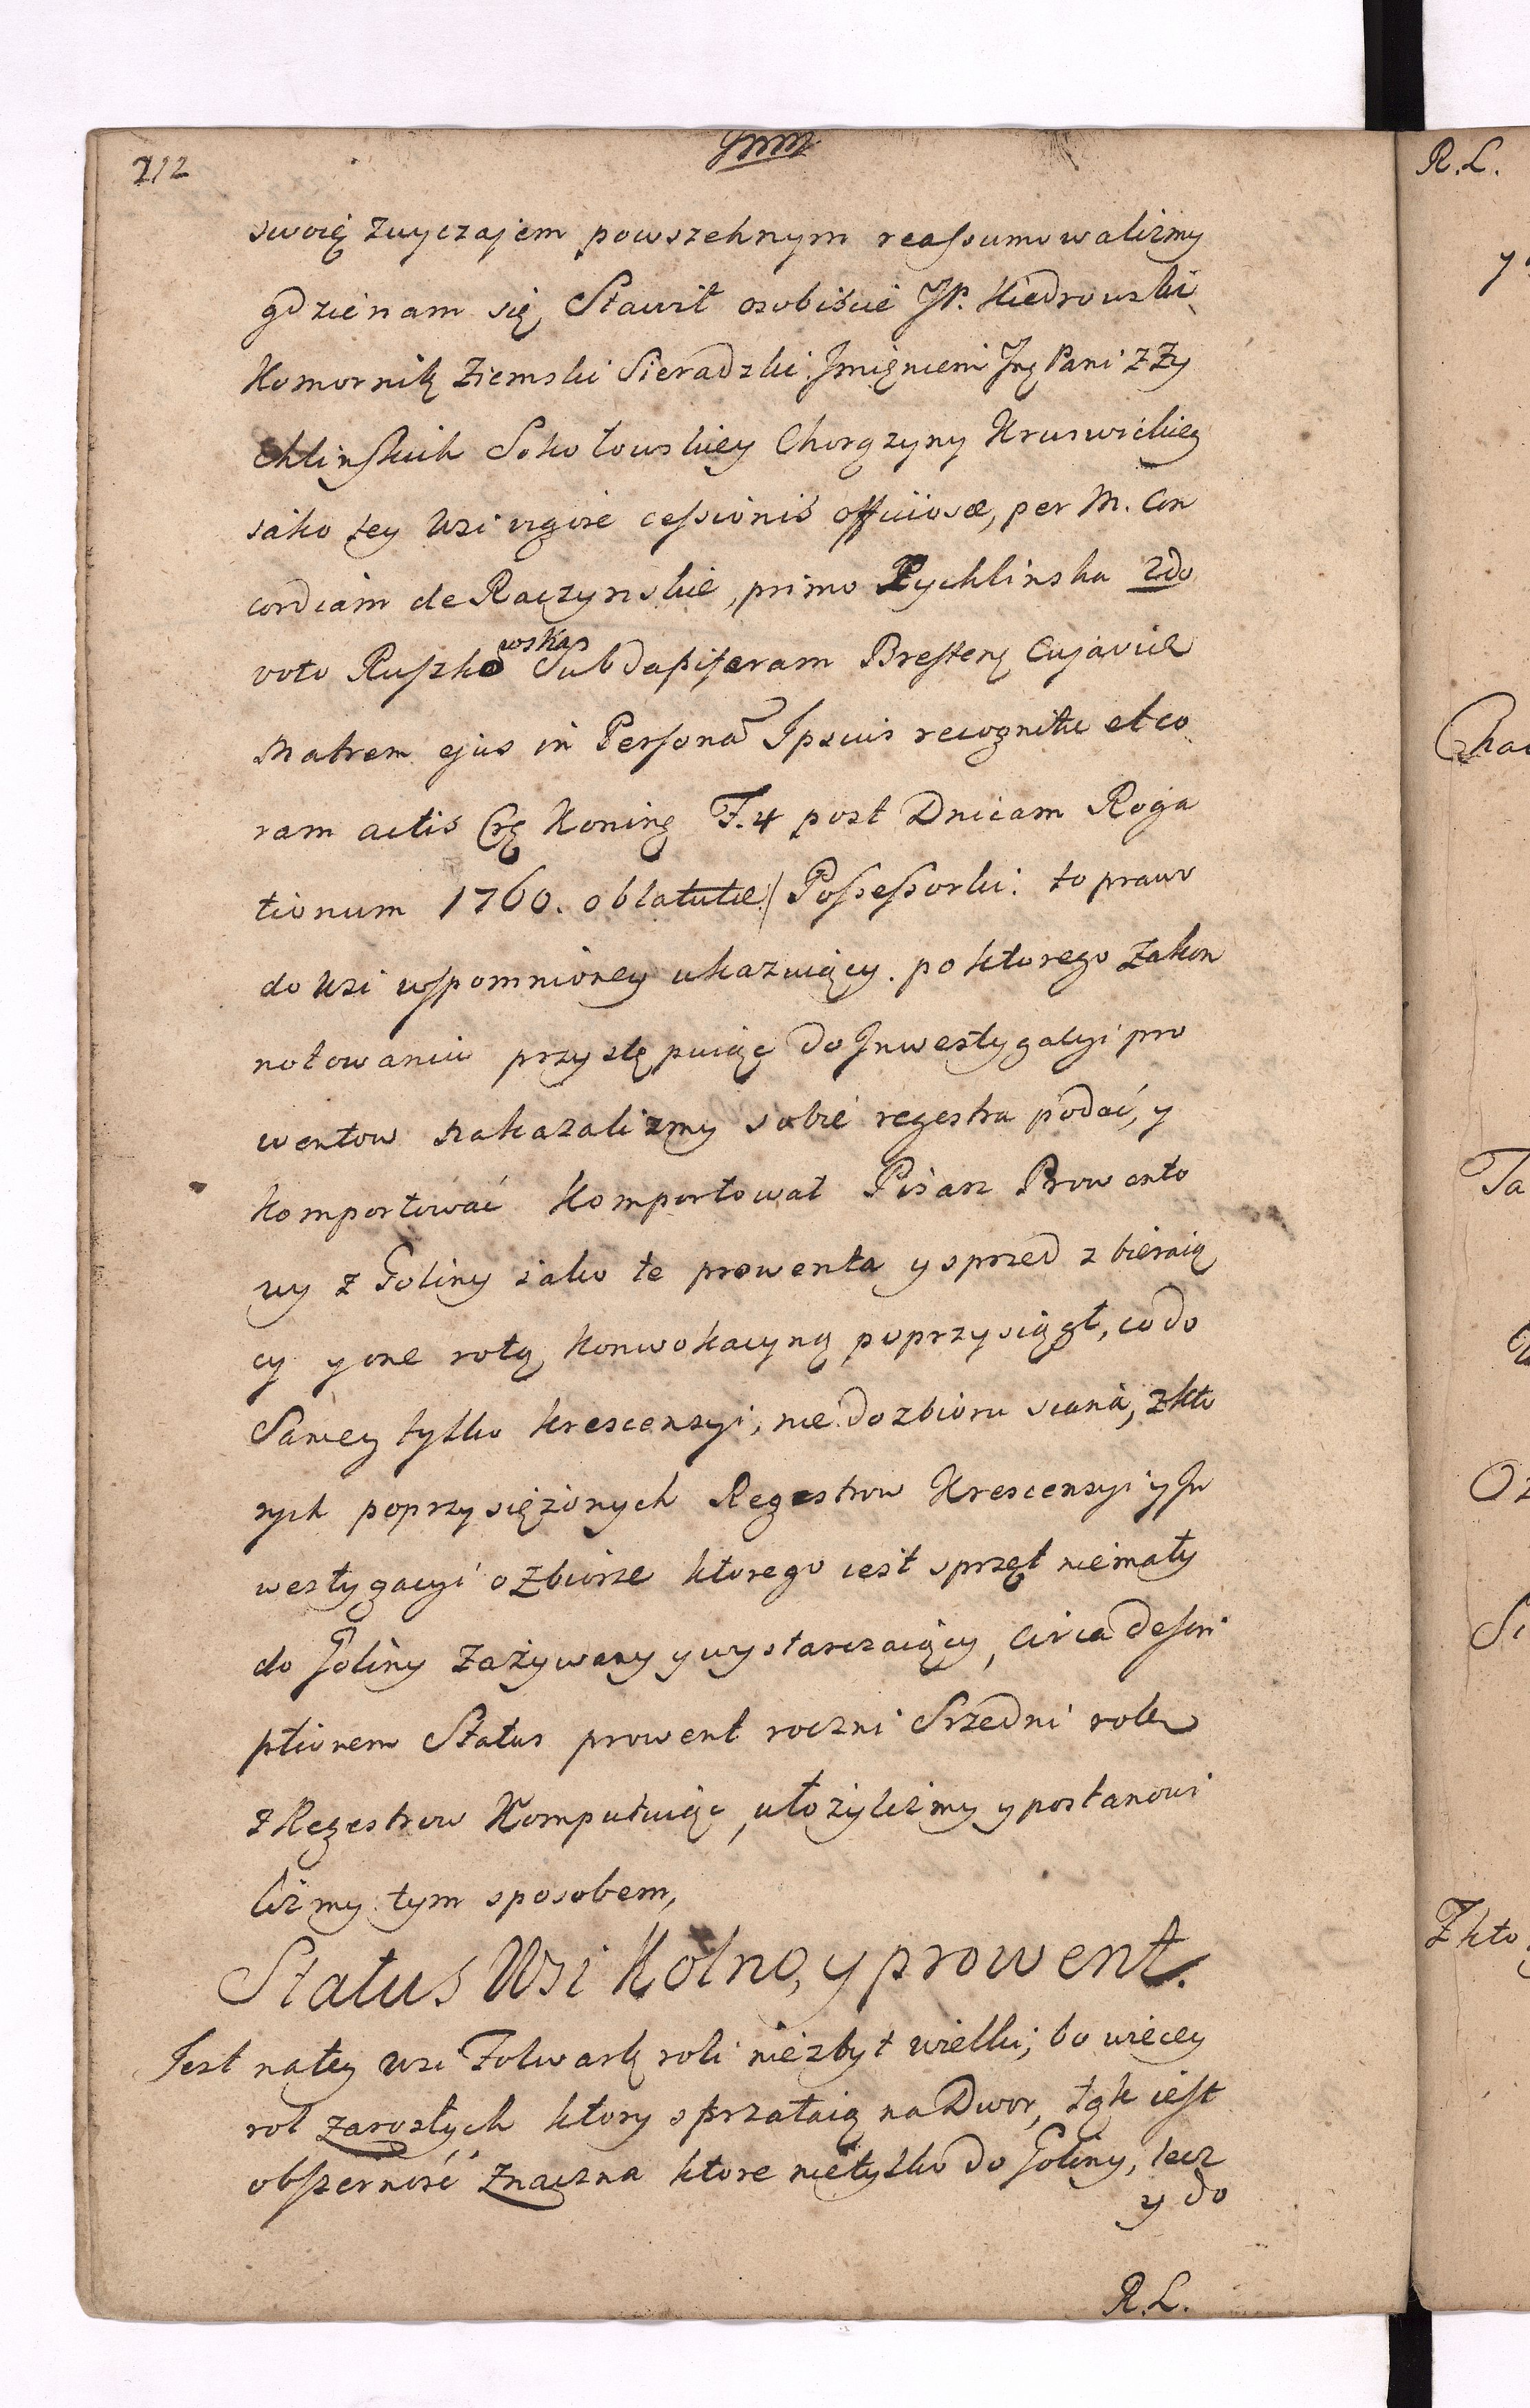 212
swoię zwyczajem powszehnym reassumowalismy
gdzie nam się Stawił osobiscie JP. Kiedrowski
Komornik Ziemski Sieradzki Jmięniem Jmę Pani z Zy
chlinskich Sokołowskiey Chorązyny Kruswickiey
iako tey Wsi vigore cessionis officiosæ, per M. Con
cordiam de Raczynskie, primo Rychlinska 2do
voto Ruszkowską Subdapiferam Brestenę Cujaviæ
Matrem ejus in Persona Ipsius recognitæ et co
ram actis Coninę F. 4 post Dnicam Roga
tionum 1760. oblatutæ / Possessorki: to prawo
do Wsi wspomnioney ukazuiący. po ktorego Zakon
notowaniu przystępuiąc do Jnwestygacyi pro
wentow nakazalizmy sobie regestra podać, y
komportować Komportował Pisarz Prowento
wy z Goliny iako te prowenta y sprzed zbieraią
cy y one rotą konwokacyną poprzysiągł, co do
Samey tylko krescensyi, nie do zbioru siana, z kto
rych poprzysiężonych Regestrow Krescensyi y Jn
westygacyi o Zbiorze ktorego iest sprzęt niemały
do Goliny Zażywany y wystarczaiący, circa descri
ptionem Status prowent roczni Srzedni rok
z Regestrow Komputuiąc, ułożylismy y postanowi
lismy tym sposobem,
Status Wsi Kolno, y prowent.
Jest na tey wsi Folwark roli niezbyt wielki; bo więcey
rol zarosłych ktory sprzątaią na Dwor, łąk iest
obszerność znaczna ktore nietylko do Goliny, lecz
y do
R. L.
R. L.
Ta
Z kto